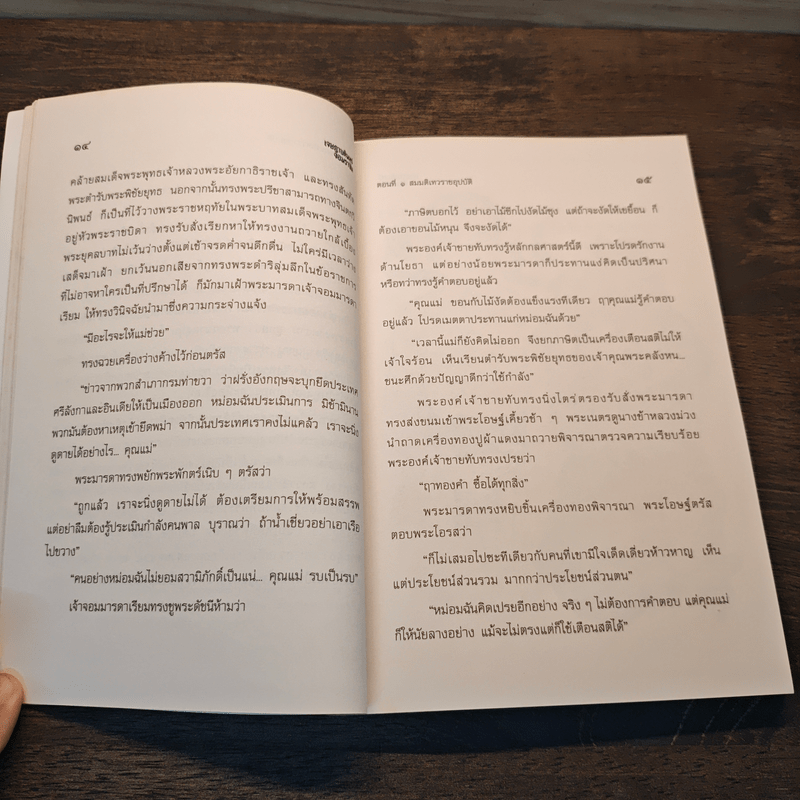 ๑๔
คล้ายสมเด็จพระพุทธเจ้าหลวงพระอัยกาธิราชเจ้า และทรงสันทัด
พระตำรับพระพิชัยยุทธ นอกจากนั้นทรงพระปรีชาสามารถทางจินตกวี
นิพนธ์ ก็เป็นที่ไว้วางพระราชหฤทัยในพระบาทสมเด็จพระพุทธเจ้า
อยู่หัวพระราชบิดา ทรงรับสั่งเรียกหาให้ทรงงานถวายใกล้เบื้อง
พระยุคลบาทไม่เว้นว่างตั้งแต่เช้าจรดค่ำจนดึกดื่น ไม่ใคร่มีเวลาว่าง
เสด็จมาเฝ้า ยกเว้นนอกเสียจากทรงพระดำริลุ่มลึกในข้อราชการ
ที่ไม่อาจหาใครเป็นที่ปรึกษาได้ ก็มักมาเฝ้าพระมารดาเจ้าจอมมารดา
เรียม ให้ทรงวินิจฉัยนำมาซึ่งความกระจ่างแจ้ง
“มีอะไรจะให้แม่ช่วย”
ทรงฉวยเครื่องว่างค้างไว้ก่อนตรัส
“ข่าวจากพวกสำเภากรมท่าขวา ว่าฝรั่งอังกฤษจะบุกยึดประเทศ
ศรีลังกาและอินเดียให้เป็นเมืองออก หม่อมฉันประเมินการ มิช้ามินาน
พวกมันต้องหาเหตุเข้ายึดพม่า จากนั้นประเทศเราคงไม่แคล้ว เราจะนิ่ง
ดูดายได้อย่างไร... คุณแม่”
พระมารดาทรงพยักพระพักตร์เนิบ ๆ ตรัสว่า
“ถูกแล้ว เราจะนิ่งดูดายไม่ได้ ต้องเตรียมการให้พร้อมสรรพ
แต่อย่าลืมต้องรู้ประเมินกำลังคนพาล บุราณว่า ถ้าน้ำเชี่ยวอย่าเอาเรือ
ไปขวาง”
“คนอย่างหม่อมฉันไม่ยอมสวามิภักดิ์เป็นแน่... คุณแม่ รบเป็นรบ”
เจ้าจอมมารดาเรียมทรงชูพระดัชนีห้ามว่า
ตอนที่ ๑ สมมติเทวราชอุปบัติ
๑๕
“ภาษิตบอกไว้ อย่าเอาไม้ซีกไปงัดไม้ซุง แต่ถ้าจะงัดให้เขยื้อน ก็
ต้องเอาขอนไม้หนุน จึงจะงัดได้”
พระองค์เจ้าชายทับทรงรู้หลักกลศาสตร์นี้ดี เพราะโปรดรักงาน
ด้านโยธา แต่อย่างน้อยพระมารดาก็ประทานแง่คิดเป็นปริศนา
หรือทว่าทรงรู้คำตอบอยู่แล้ว
“คุณแม่ ขอนกับไม้งัดต้องแข็งแรงทีเดียว ฤๅคุณแม่รู้คำตอบ
อยู่แล้ว โปรดเมตตาประทานแก่หม่อมฉันด้วย”
“เวลานี้แม่ก็ยังคิดไม่ออก จึงยกภาษิตเป็นเครื่องเตือนสติไม่ให้
เจ้าใจร้อน เห็นเรียนตำรับพระพิชัยยุทธของเจ้าคุณพระคลังหน...
ชนะศึกด้วยปัญญาดีกว่าใช้กำลัง”
พระองค์เจ้าชายทับทรงนิ่งไตร่ตรองรับสั่งพระมารดา
ทรงส่งขนมเข้าพระโอษฐ์เคี้ยวช้า ๆ พระเนตรดูนางข้าหลวงม่วง
นำถาดเครื่องทองปูผ้าแดงมาถวายพิจารณาตรวจความเรียบร้อย
พระองค์เจ้าชายทับทรงเปรยว่า
“ฤาทองคำ ซื้อได้ทุกสิ่ง”
พระมารดาทรงหยิบชิ้นเครื่องทองพิจารณา พระโอษฐ์ตรัส
ตอบพระโอรสว่า
“ก็ไม่เสมอไปซะทีเดียวกับคนที่เขามีใจเด็ดเดี่ยวห้าวหาญ เห็น
แต่ประโยชน์ส่วนรวม มากกว่าประโยชน์ส่วนตน”
“หม่อมฉันคิดเปรยอีกอย่าง จริง ๆ ไม่ต้องการคำตอบ แต่คุณแม่
ก็ให้นัยลางอย่าง แม้จะไม่ตรงแต่ก็ใช้เตือนสติได้”